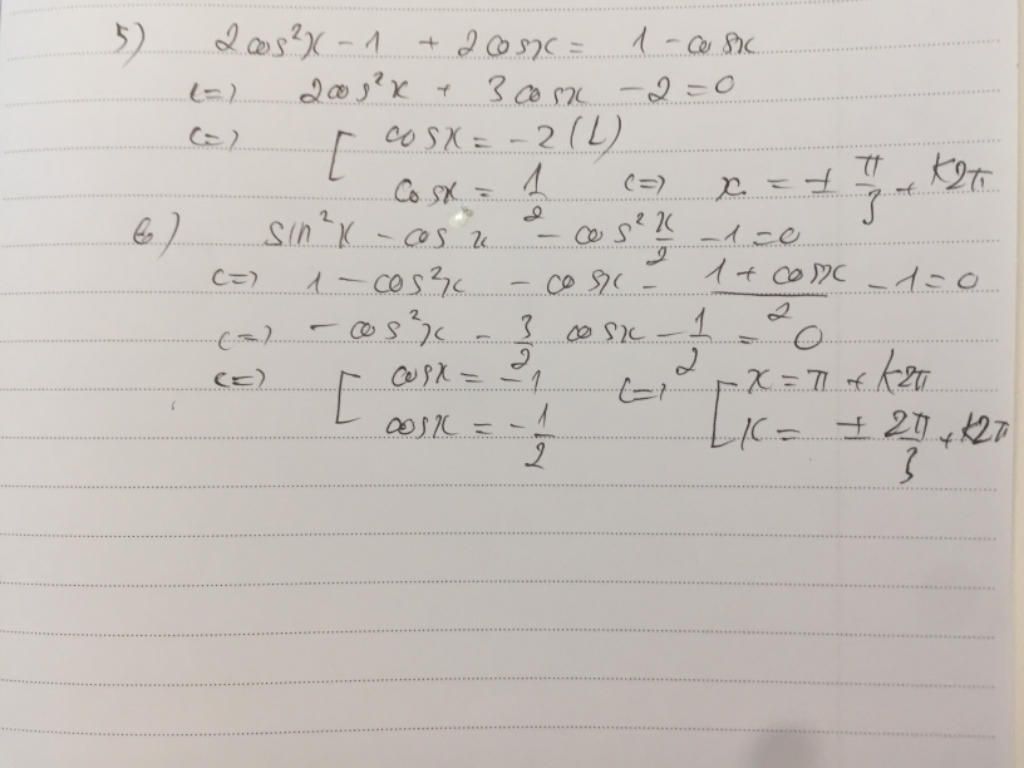 5) 2cos²x - 1 + 2cosx = 1 - cosx
<=> 2cos²x + 3cosx - 2 = 0
<=> [ cosx = -2 (L)
cosx = 1/2 <=> x = ± π/3 + k2π
6) sin²x - cos x - cos² x/2 - 1 = 0
<=> 1 - cos²x - cosx - (1 + cosx)/2 - 1 = 0
<=> - cos²x - 3/2 cosx - 1/2 = 0
<=> [ cosx = -1 <=> [ x = π + k2π
cosx = - 1/2 x = ± 2π/3 + k2π